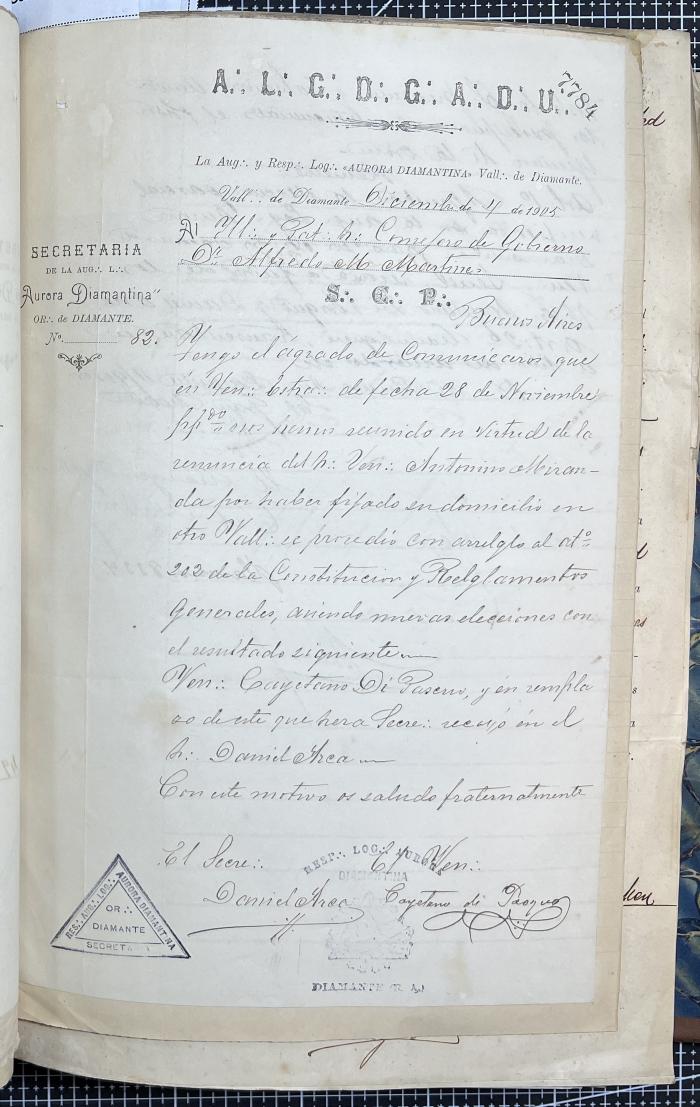 A∴ L∴ G∴ D∴ G∴ A∴ D∴ U∴
7784
La Aug∴ y Resp∴ Log∴ «AURORA DIAMANTINA» Vall∴ de Diamante.
Vall∴ de Diamante Diciembre 4 de 1905
Al Ill∴ y Pod∴ h∴ Consejero de Gobierno
Dr Alfredo M Martines
SECRETARIA
DE LA AUG∴ L∴
"Aurora Diamantina"
OR∴ de DIAMANTE.
No. 82.
S∴ E∴ P∴
Buenos Aires
Tengo el ágrado de Comunicaros que
én Ten∴ Extra∴ de fecha 28 de Noviembre
ppdo nos hemos reunido en virtud de la
renuncia del h∴ Ven∴ Antonino Miran-
da por haber fijado su domicilio en
otro Vall∴ se procedió con arreglo al arto
202 de la Constitucion y Relglamentos
Generales, aciendo nuevas elecciones con
el resultado siguiente
Ven∴ Cayetano Di Pascuo, y én rempla
zo de este que hera Secre∴ recayó én el
h∴ Daniel Arca
Con este motivo os saludo fraternalmente
El Secre∴ El Ven∴
Daniel Arca Cayetano di Pasquo
RES∴ AUG∴ LOG∴ AURORA DIAMANTINA
OR∴
DIAMANTE
SECRETARIA
RESP∴ LOG∴ AURORA
DIAMANTINA
DIAMANTE (R. A.)